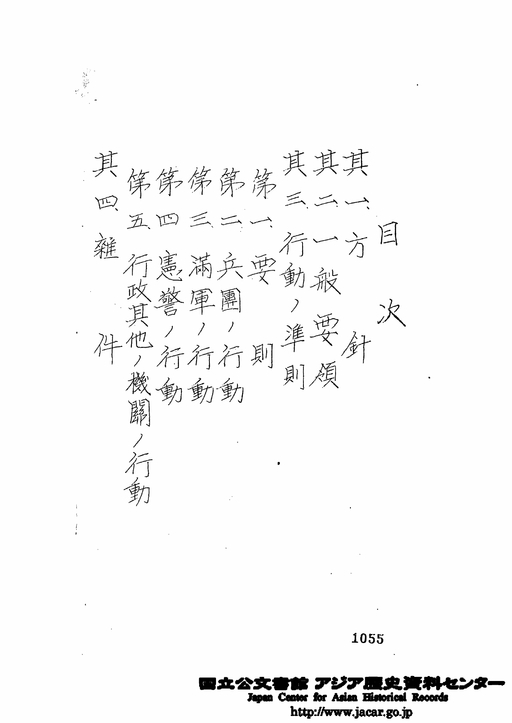 目次
其一、方針
其二、一般要領
其三、行動ノ準則
第一、要則
第二、兵團ノ行動
第三、滿軍ノ行動
第四、憲警ノ行動
第五、行政其他ノ機關ノ行動
其四、雜件
1055
国立公文書館 アジア歴史資料センター
Japan Center for Asian Historical Records
http://www.jacar.go.jp